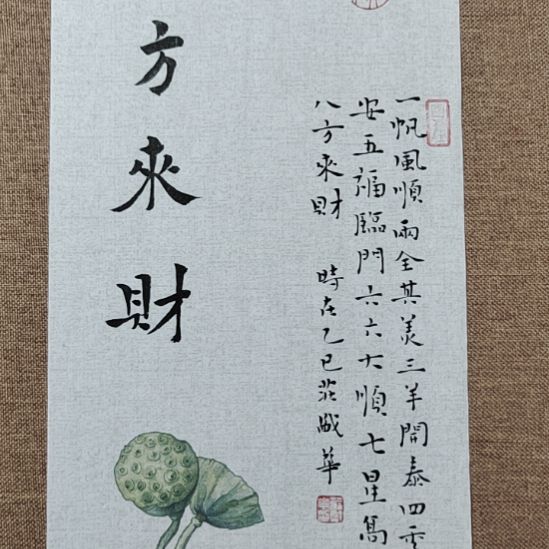 一帆風順兩全其美三羊開泰四季
安五福臨門六六大順七星高
八方來財 時在乙巳華
方來財